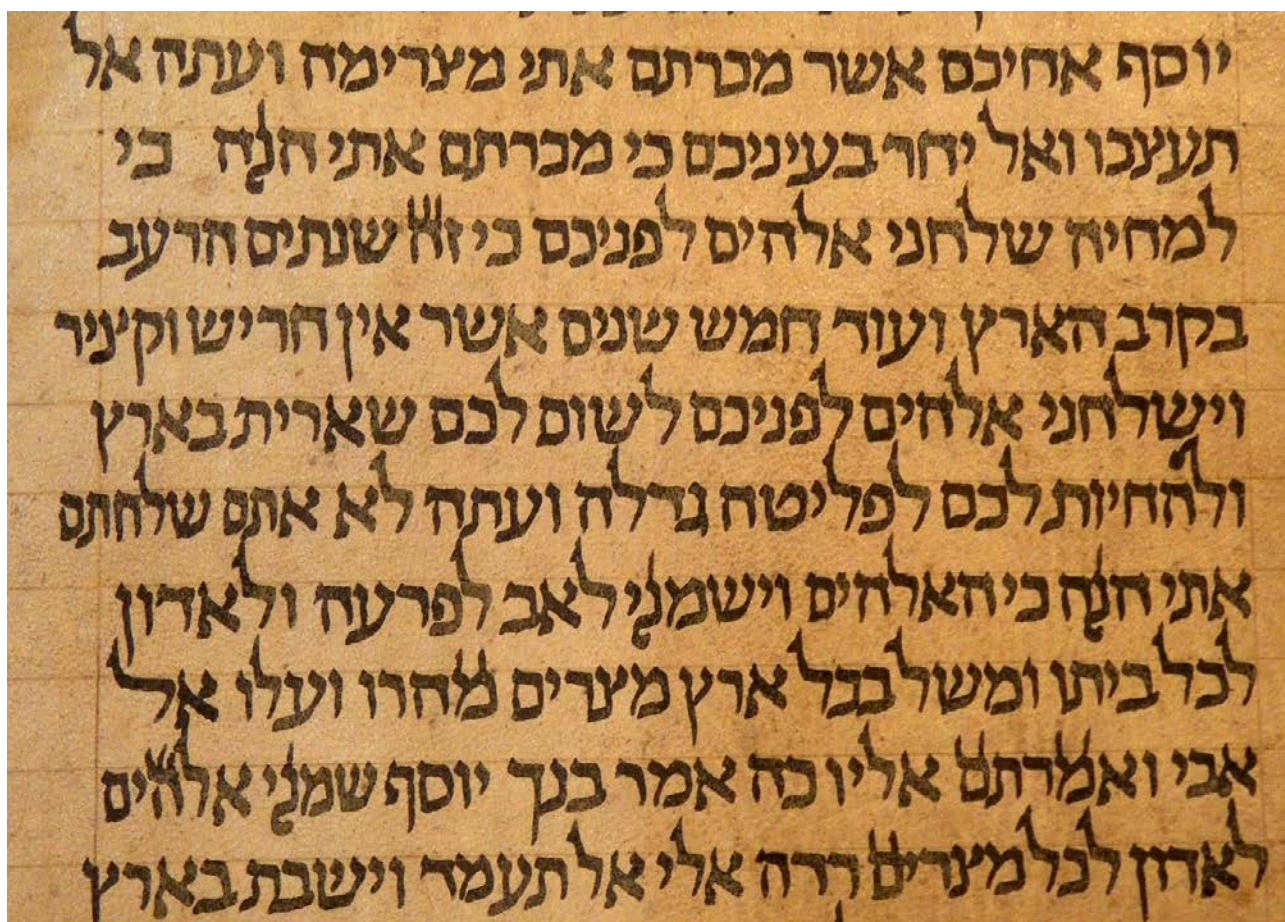 יוסף אחיכם אשר מכרתם אתי מצרימה ועתה אל
תעצבו ואל יחר בעיניכם כי מכרתם אתי הנה כי
למחיה שלחני אלהים לפניכם כי זה שנתים הרעב
בקרב הארץ ועוד חמש שנים אשר אין חריש וקציר
וישלחני אלהים לפניכם לשום לכם שארית בארץ
ולהחיות לכם לפליטה גדלה ועתה לא אתם שלחתם
אתי הנה כי האלהים וישמני לאב לפרעה ולאדון
לכל ביתו ומשל בכל ארץ מצרים מהרו ועלו אל
אבי ואמרתם אליו כה אמר בנך יוסף שמני אלהים
לאדון לכל מצרים רדה אלי אל תעמד וישבת בארץ